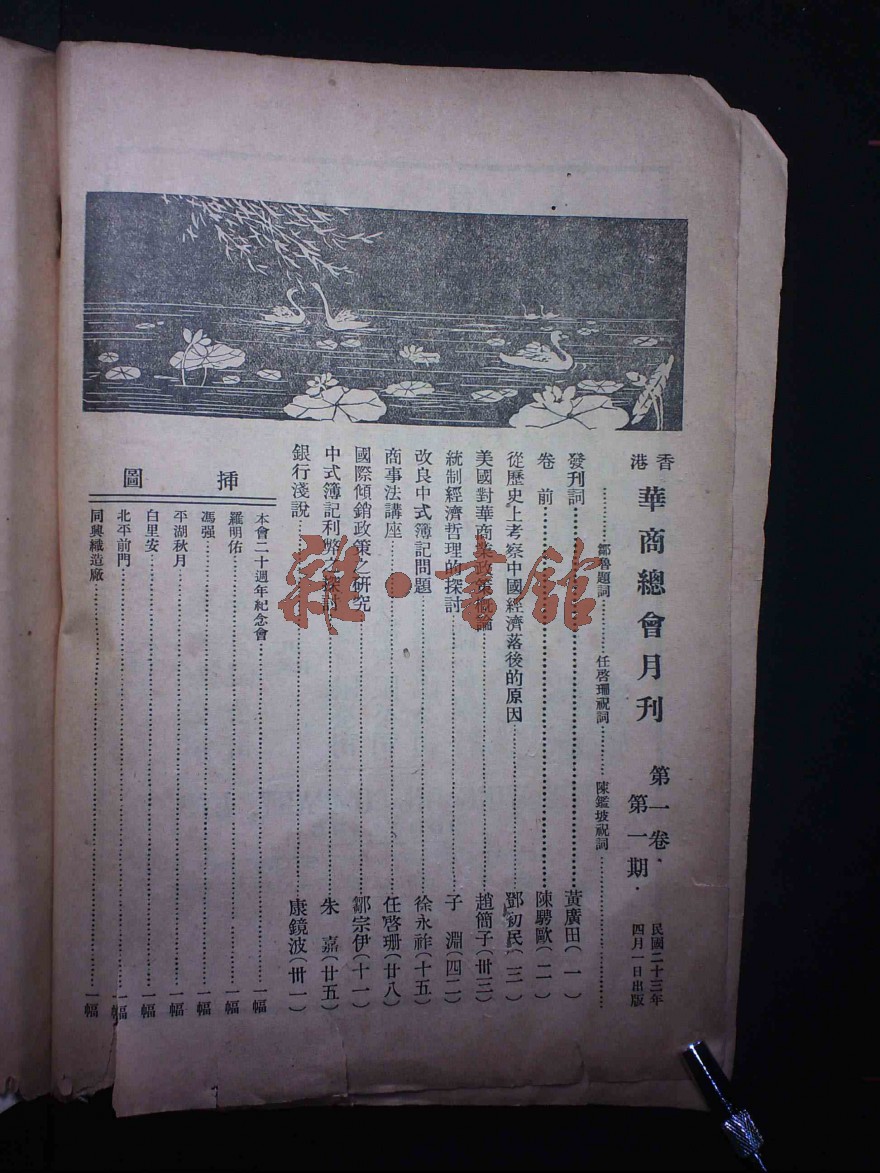 香港
華商總會月刊
第一卷、
第一期．
民國二十三年
四月一日出版
鄒魯題詞 任啓珊祝詞 陳鑑坡祝詞
發刊詞 黃廣田（一）
卷前 陳騁歐（二）
從歷史上考察中國經濟落後的原因 鄧初民（三）
美國對華商業政策概論 趙簡子（卅三）
統制經濟哲理的探討 子淵（四二）
改良中式簿記問題 徐永祚（十五）
商事法講座 任啓珊（廿八）
國際傾銷政策之研究 鄒宗伊（十一）
中式簿記利弊之探討 朱嘉（廿五）
銀行淺說 康鏡波（卅一）
揷圖
本會二十週年紀念會 一幅
羅明佑 一幅
馮强 一幅
平湖秋月 一幅
白里安 一幅
北平前門 一幅
同興織造廠 一幅
雜·書館